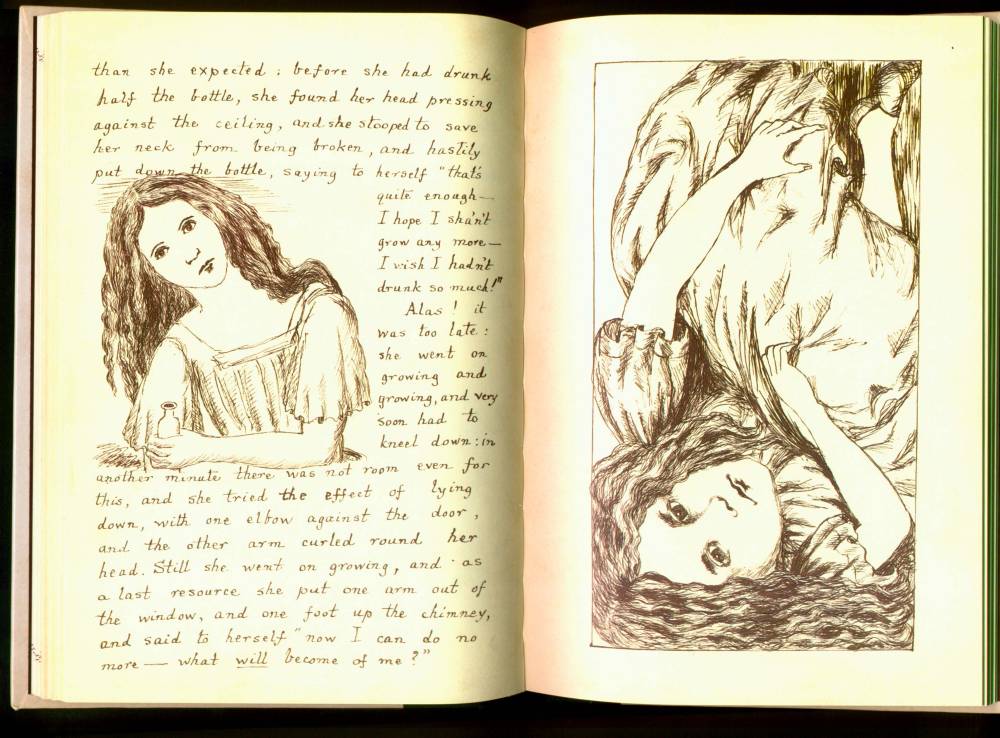 than she expected : before she had drunk
half the bottle, she found her head pressing
against the ceiling, and she stooped to save
her neck from being broken, and hastily
put down the bottle, saying to herself "that's
quite enough—
I hope I sha'n't
grow any more—
I wish I hadn't
drunk so much!"
Alas! it
was too late:
she went on
growing and
growing, and very
soon had to
kneel down: in
another minute there was not room even for
this, and she tried the effect of lying
down, with one elbow against the door,
and the other arm curled round her
head. Still she went on growing, and as
a last resource she put one arm out of
the window, and one foot up the chimney,
and said to herself "now I can do no
more — what will become of me?"